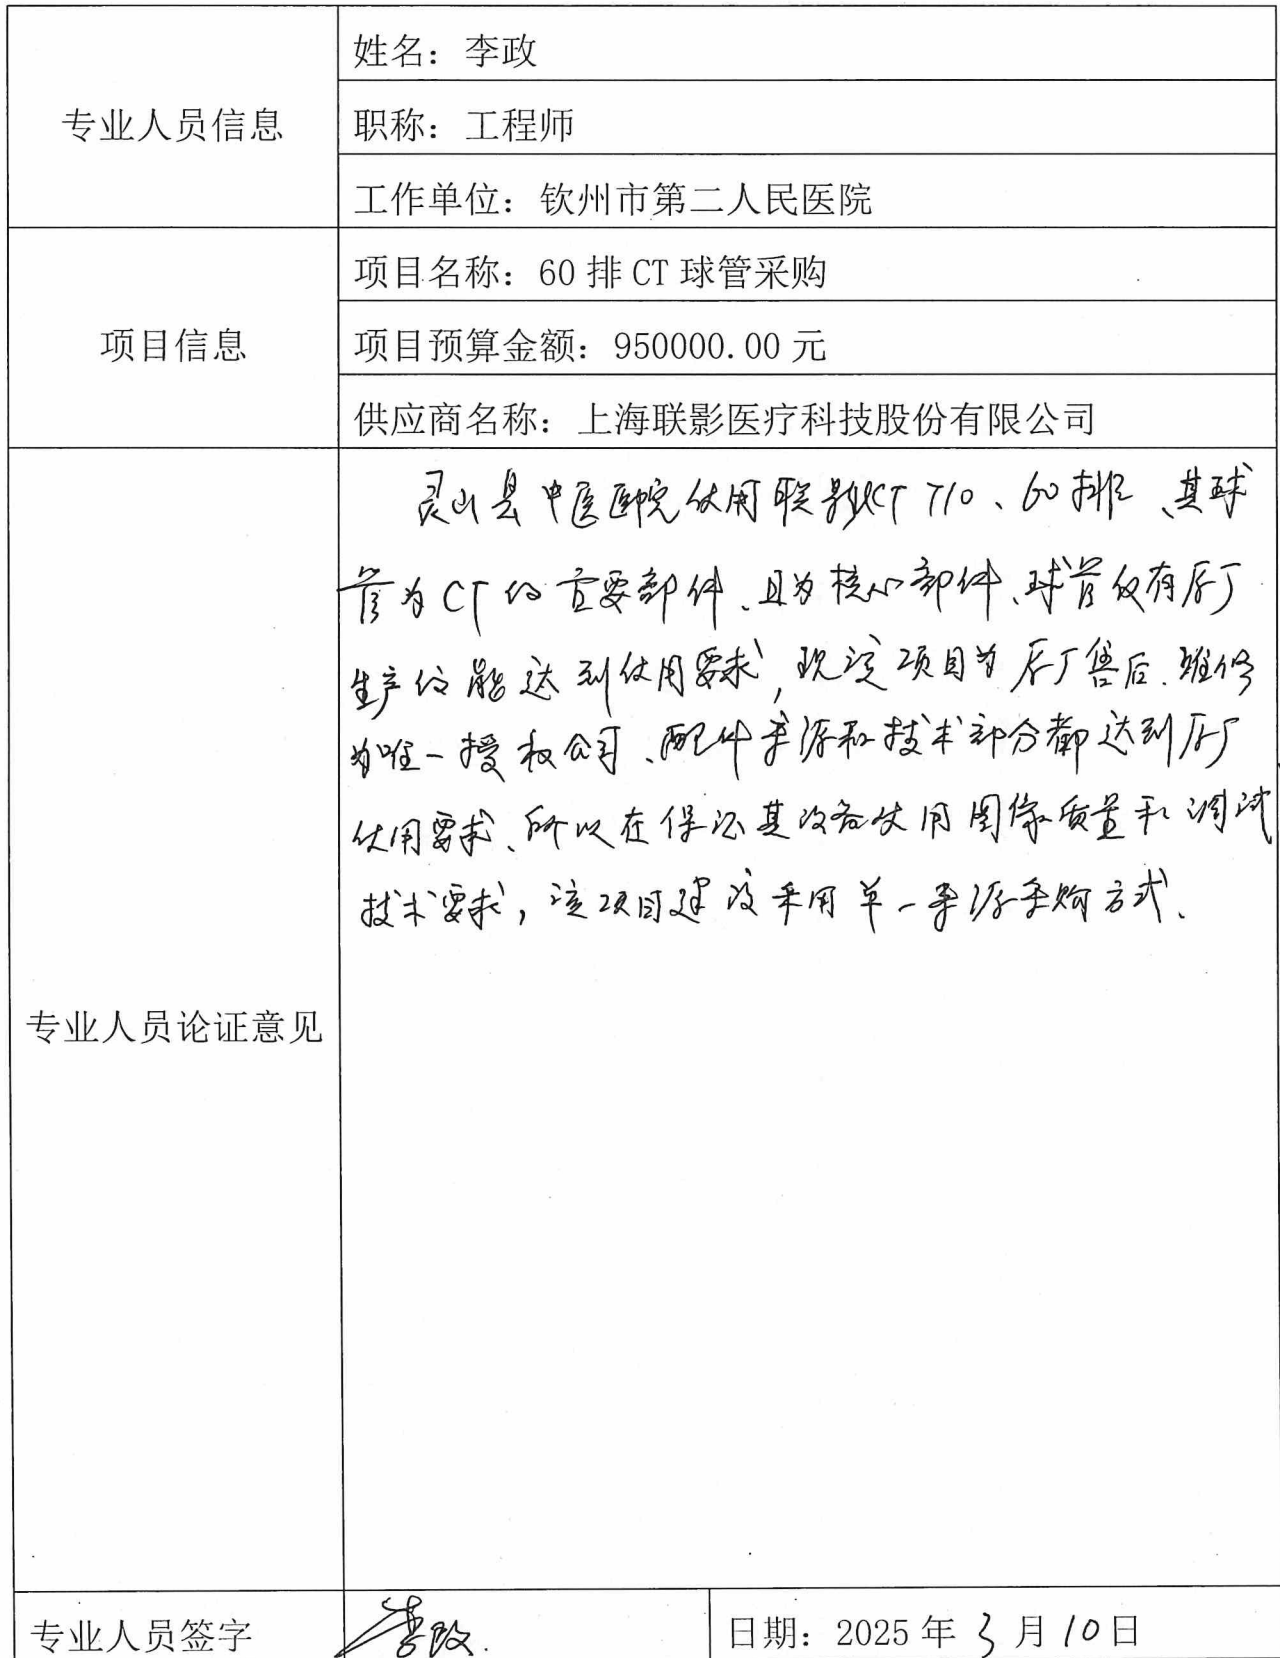 专业人员信息
姓名：李政
职称：工程师
工作单位：钦州市第二人民医院
项目信息
项目名称：60排CT球管采购
项目预算金额：950000.00元
供应商名称：上海联影医疗科技股份有限公司
专业人员论证意见
灵山县中医医院使用联影CT 710、60排、其球
管为CT的重要部件、且为核心部件、球管仅有原厂
生产的能达到使用要求，现该项目为原厂售后、维修
为唯一授权公司、配件来源和技术部分都达到原厂
使用要求、所以在保证其设备使用图像质量和调试
技术要求，该项目建议采用单一来源采购方式、
专业人员签字
李政
日期：2025年3月10日